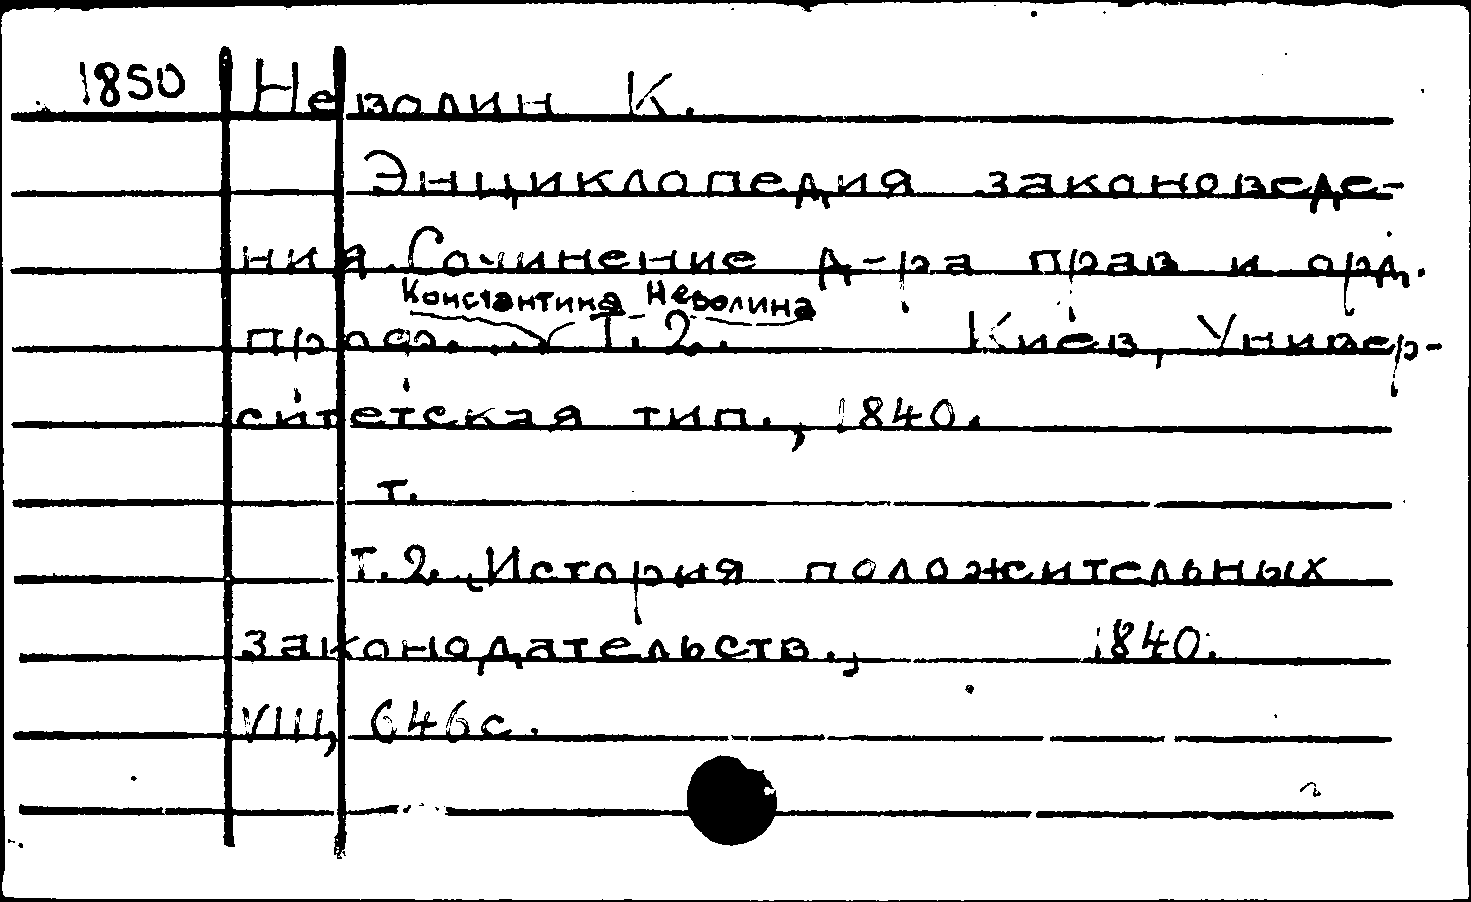 1850 Неволин К.
Энциклопедия законоведе-
ния. Сочинение д-ра прав и орд.
Константина Неволина
проф. ... Т. 2. Киев, Универ-
ситетская тип., 1840.
т.
Т. 2. История положительных
законодательств., 1840.
VIII, 646 с.